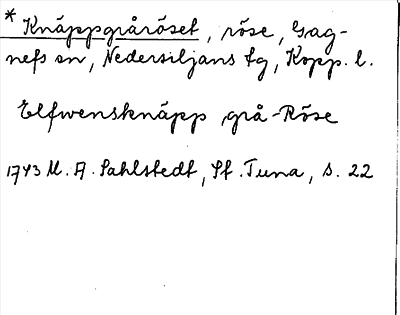 * Knäppgråröset, röse, Gag-
nefs sn, Nedersiljans tg, Kopp. l.
Elfwensknäpp grå-Röse
1743 M. A. Sahlstedt, St. Tuna, s. 22